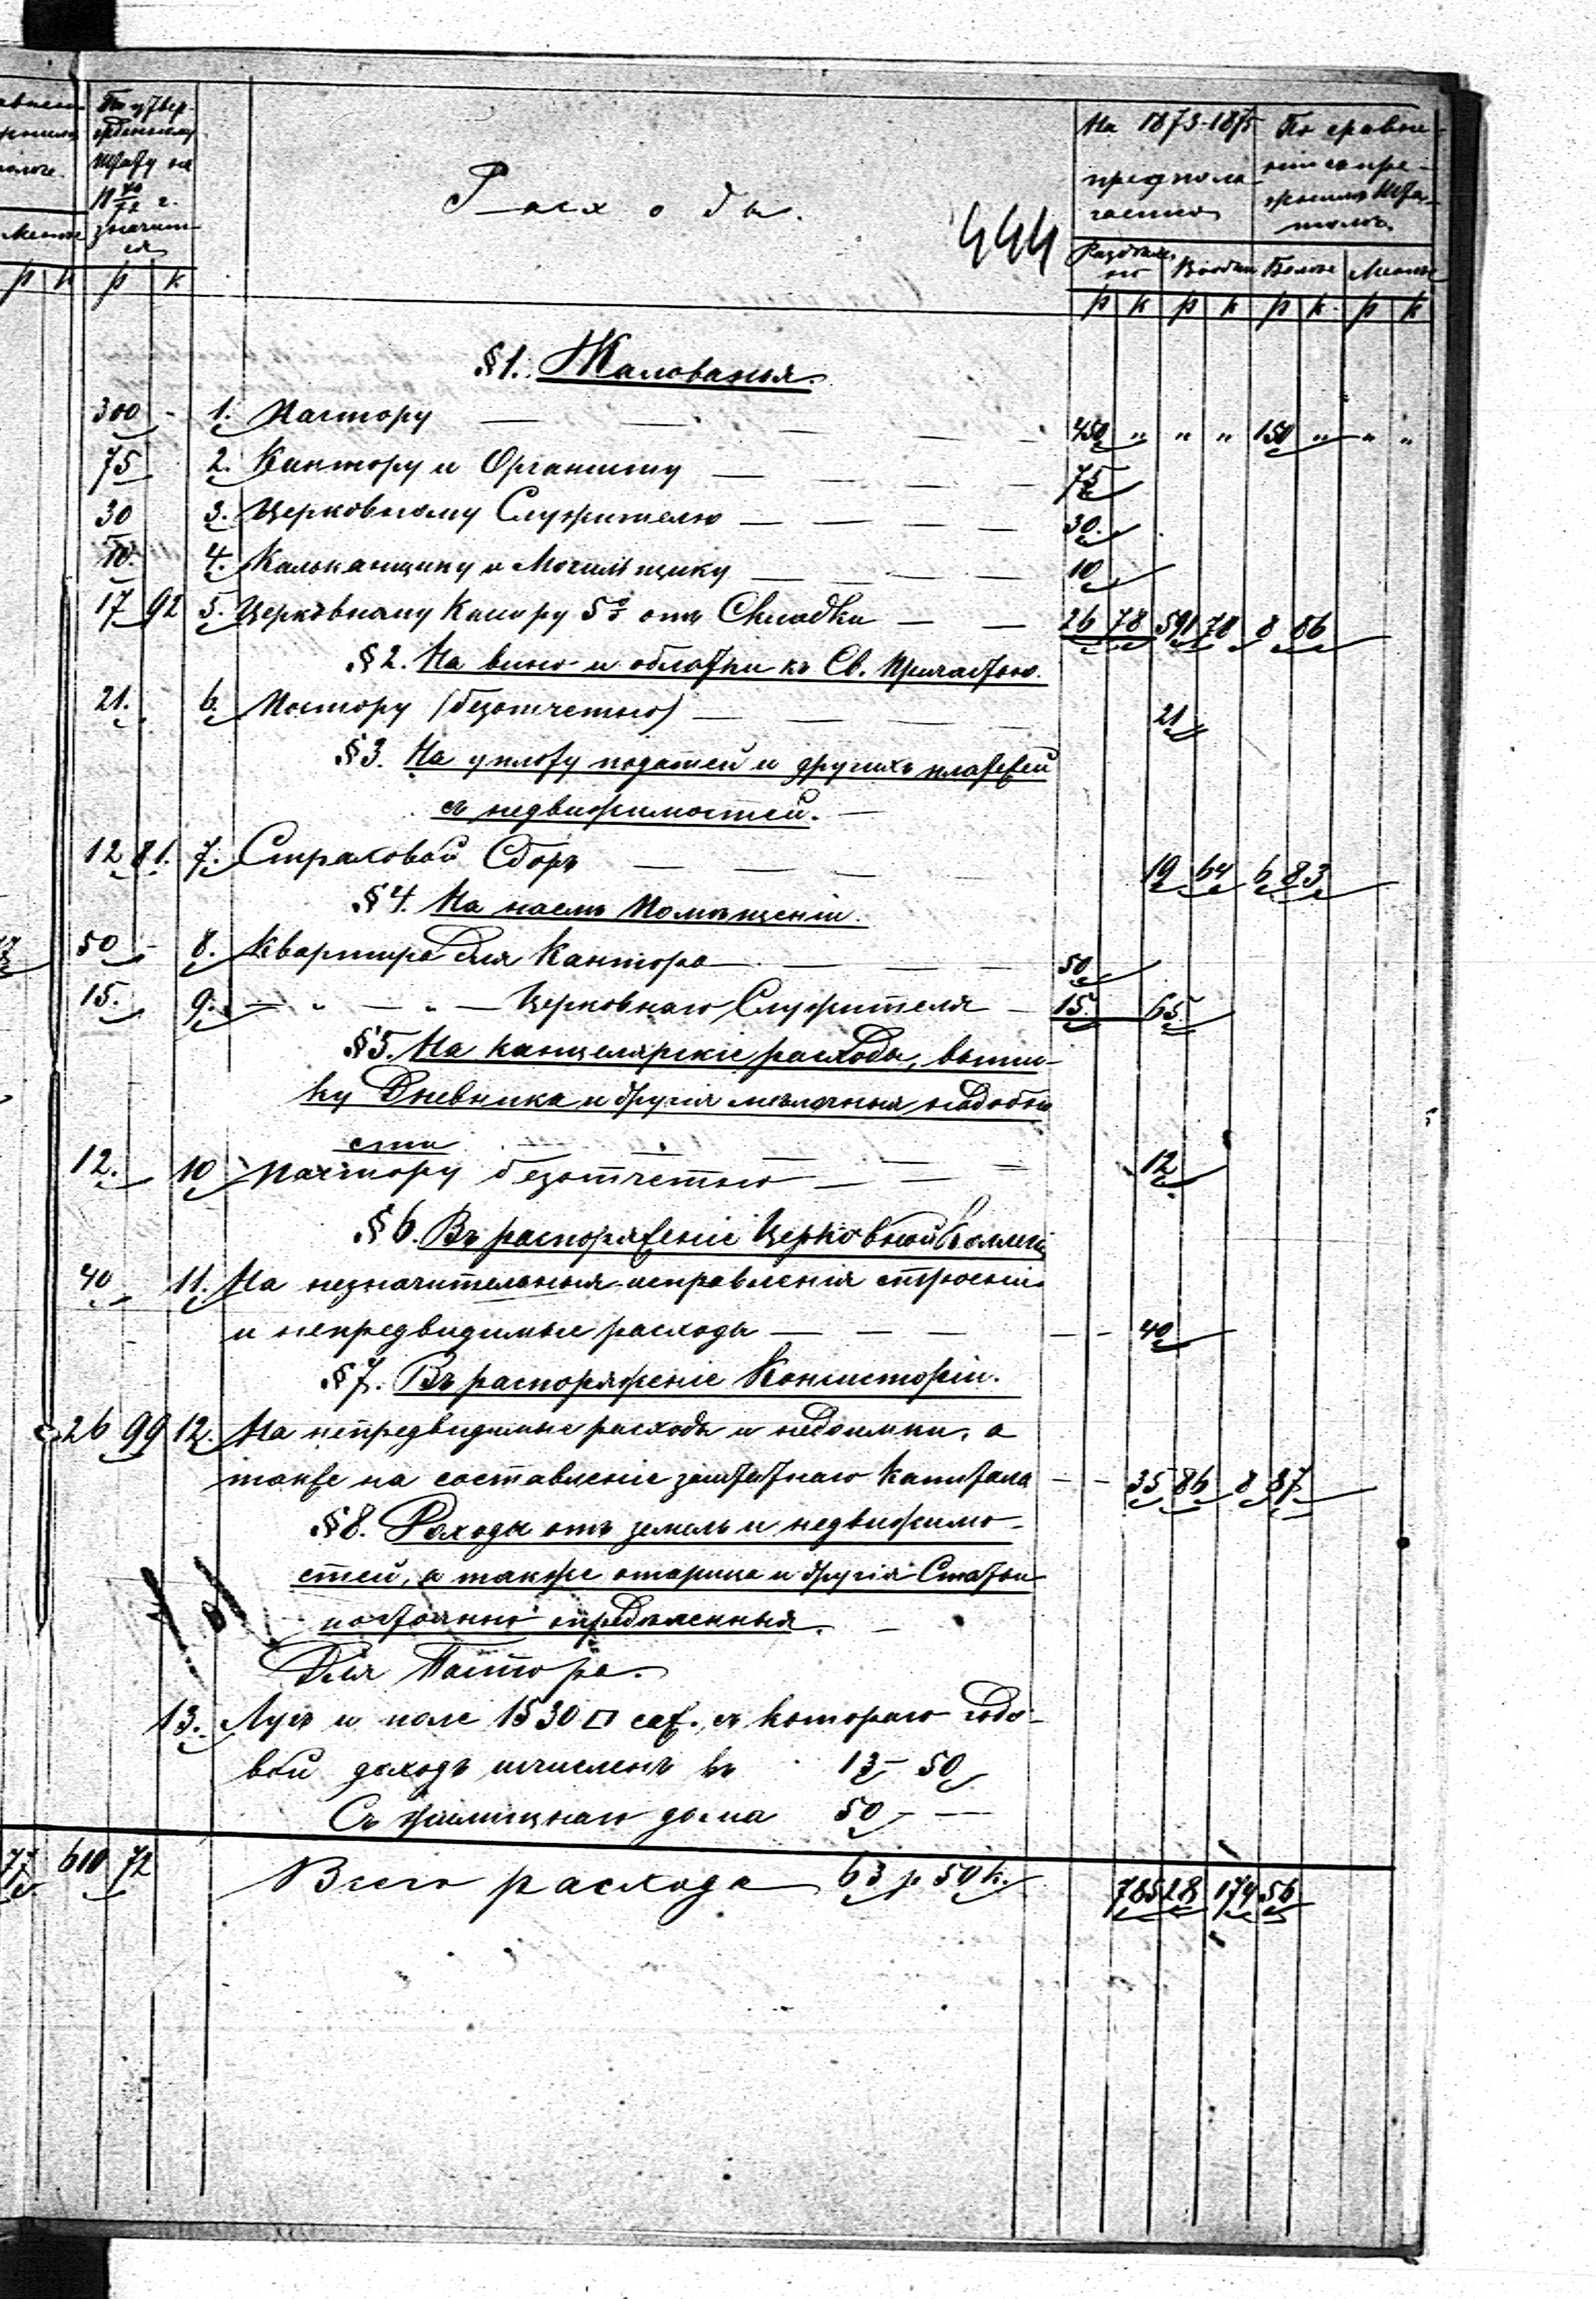 По утвер-
жденному
штату на
18 70/72 г.
значит-
ся
р к р к
Расходы.
444
На 1873-1875
предпола-
гается
По сравне-
нію съ пре-
жнимъ Шта-
томъ
Раздѣль-
но Вообще Болѣе Менѣе
р к р к р к р к
§ 1. Жалованья.
300 - 1. Пастору — — — — 450 „ „ „ 150 „ „ „
75 2. Кантору и Органисту — — — 75
30 3. Церковному Служителю — — — 30.
10. 4. Калькащику и Могильщику — — — 10
17 92 5. Церковному Кассиру 5% отъ Складки — — 26 78 591 78 8 86
§ 2. На вино и облатки къ Св. Причастію.
21. 6. Пастору (безотчетно) — — — 21
§ 3. На уплату податей и другихъ платежей
съ недвижимостей. —
12 81. 7. Страховой Сборъ — — — 19 64 6 83
§ 4. На наемъ Помѣщенія.
50 - 8. Квартира для Кантора — — — 50
15. 9. — „ — „ — Церковнаго Служителя — 15. 65.
§ 5. На канцелярскіе расходы, выпис-
ку Дневника и другія мелочныя надобно
сти
12. 10 Пастору безотчетно — — 12
§ 6. Въ распоряженіе Церковной Коллегіи
40 11. На незначительныя исправленія строеній
и непредвидимые расходы — — — 40
§ 7. Въ распоряженіе Консисторіи.
26 99 12. На непредвидимые расходы и недоимки, а
также на составленіе заштатнаго Капитала — - 35 86 8 87
§ 8. Расходы отъ земель и недвижимо-
стей, а также и другія Статьи
постоянно опредѣленныя. —
Для Пастора.
13. Лугъ и поле 1530 □ саж., съ котораго годо-
вой доходъ исчисленъ въ 13 - 50
Съ жилищнаго дома 50 - —
77 610 72 Всего расхода 63 р 50 к. 785 28 174 56